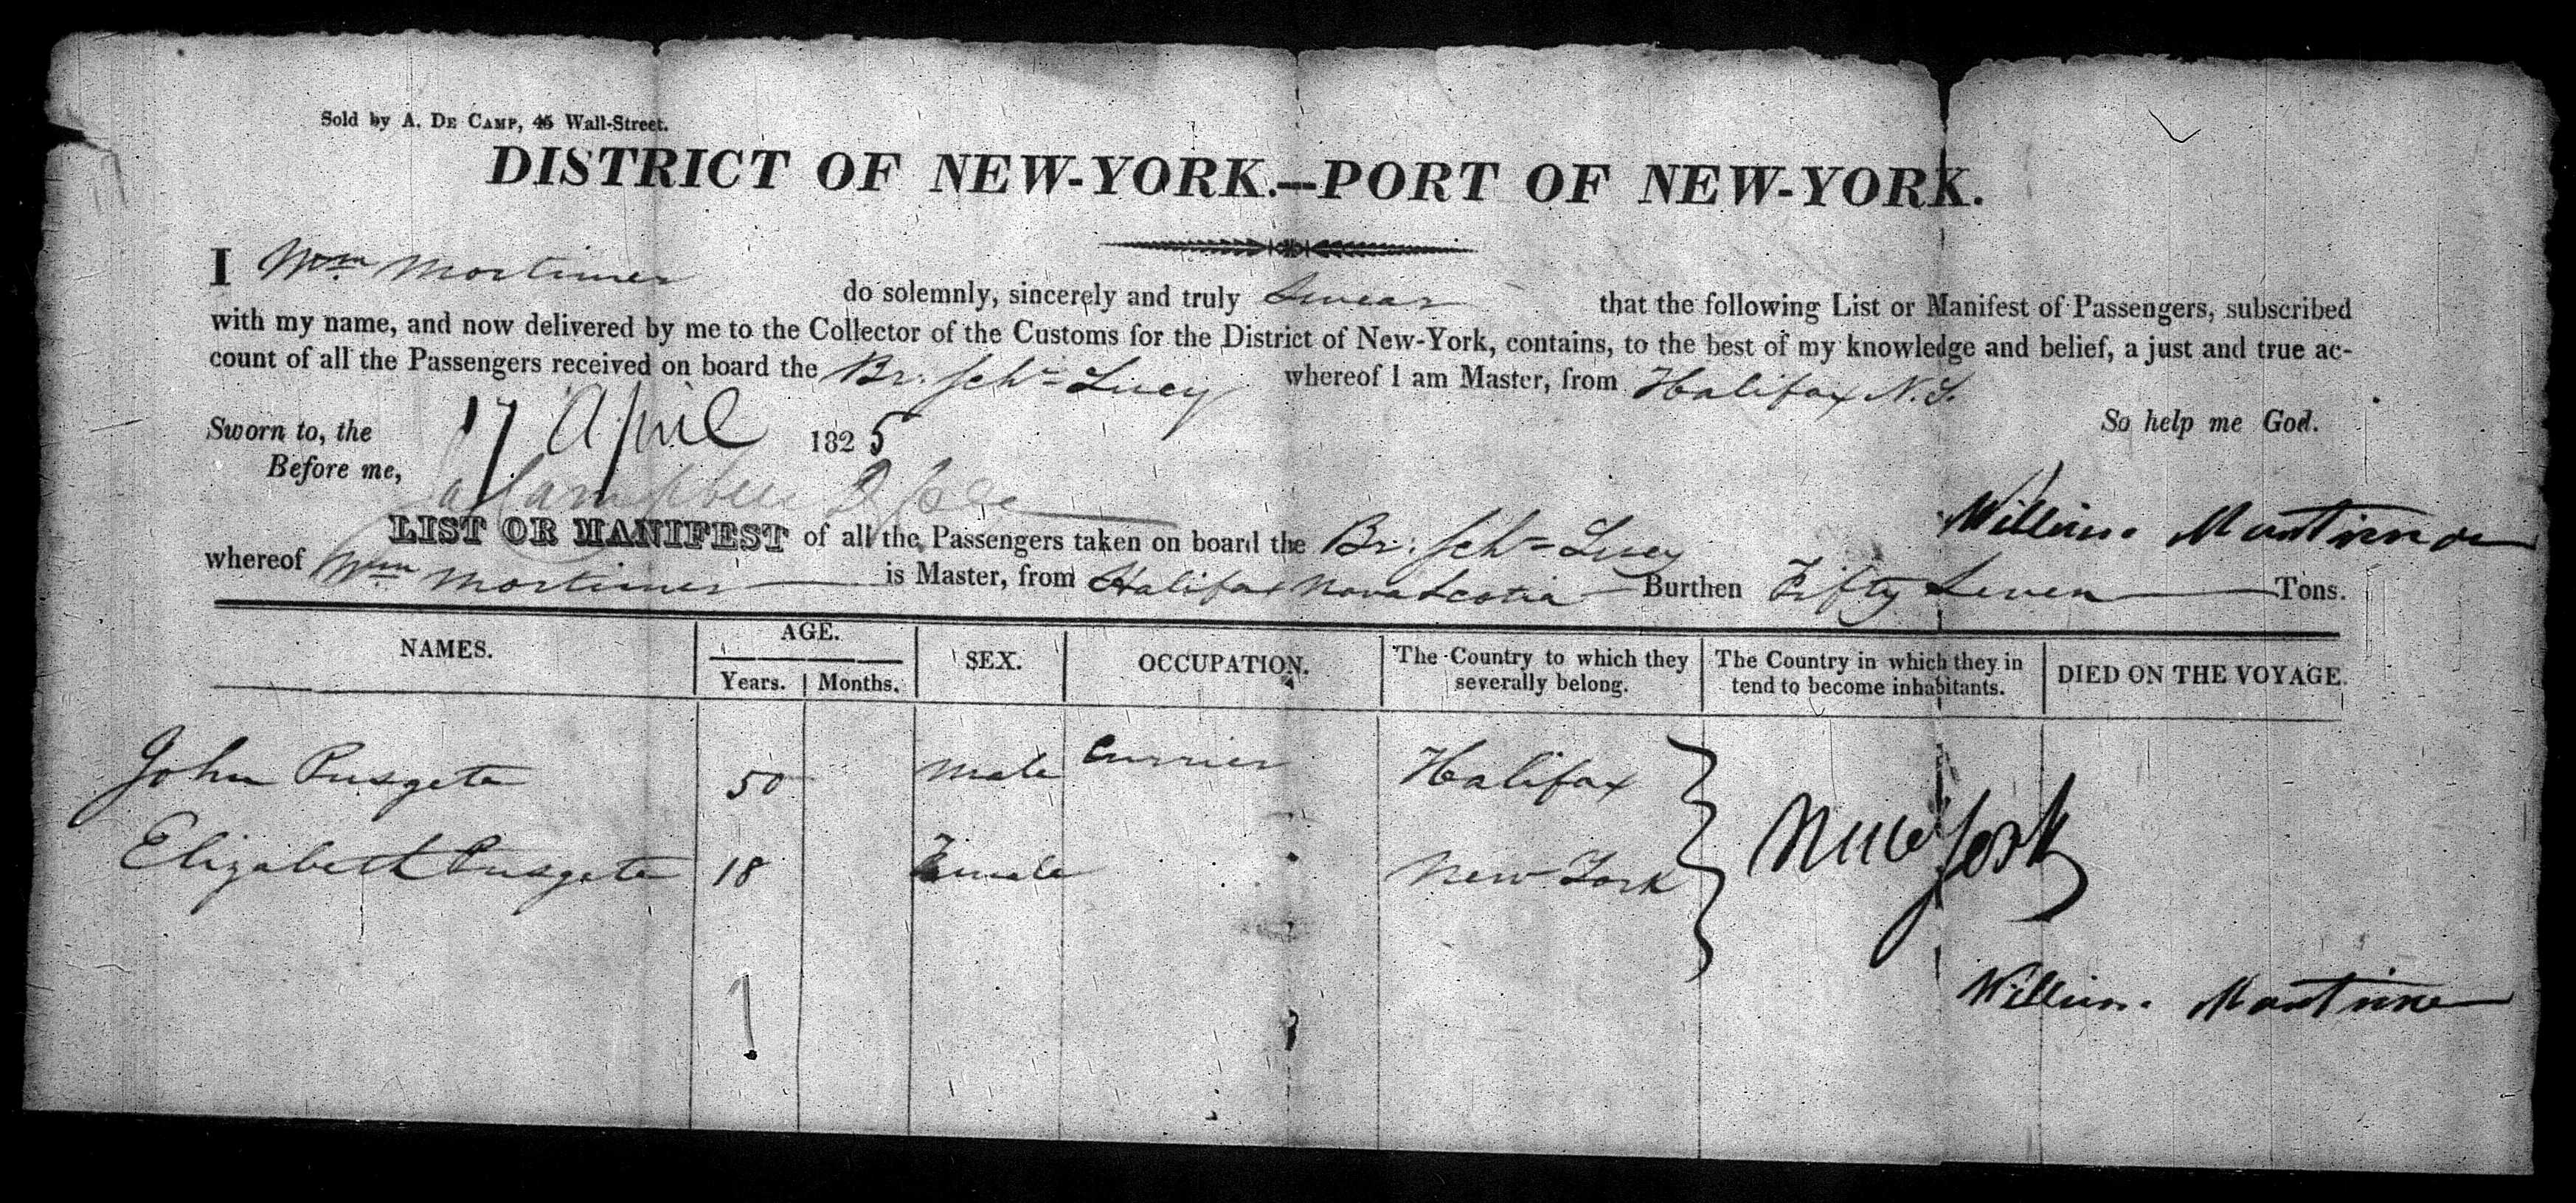 Sold by A. DE CAMP, 45 Wall-Street.
DISTRICT OF NEW-YORK.—PORT OF NEW-YORK.
I Wm Mortimer do solemnly, sincerely and truly Swear that the following List or Manifest of Passengers, subscribed
with my name, and now delivered by me to the Collector of the Customs for the District of New-York, contains, to the best of my knowledge and belief, a just and true ac-
count of all the Passengers received on board the Br. Schr Lucy whereof I am Master, from Halifax N.S.
Sworn to, the 17 April 1825 So help me God.
Before me,
William
LIST OR MANIFEST of all the Passengers taken on board the Br. Schr Lucy
whereof Wm Mortimer is Master, from Halifax Nova Scotia Burthen Fifty Seven Tons.
NAMES. AGE. SEX. OCCUPATION. The Country to which they severally belong. The Country in which they in tend to become inhabitants. DIED ON THE VOYAGE.
Years. Months.
John 50 Male Currier Halifax
New York
Elizabeth 18 Female New York
William